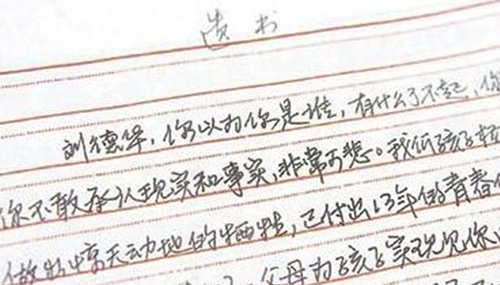 遗书
刘德华，你以为你是谁，有什么了不起，你
你不敢承认现实和事实，非常可悲。我低孩子
做出惊天动地的牺牲，已付出13年的青春
父母为孩子实现见你